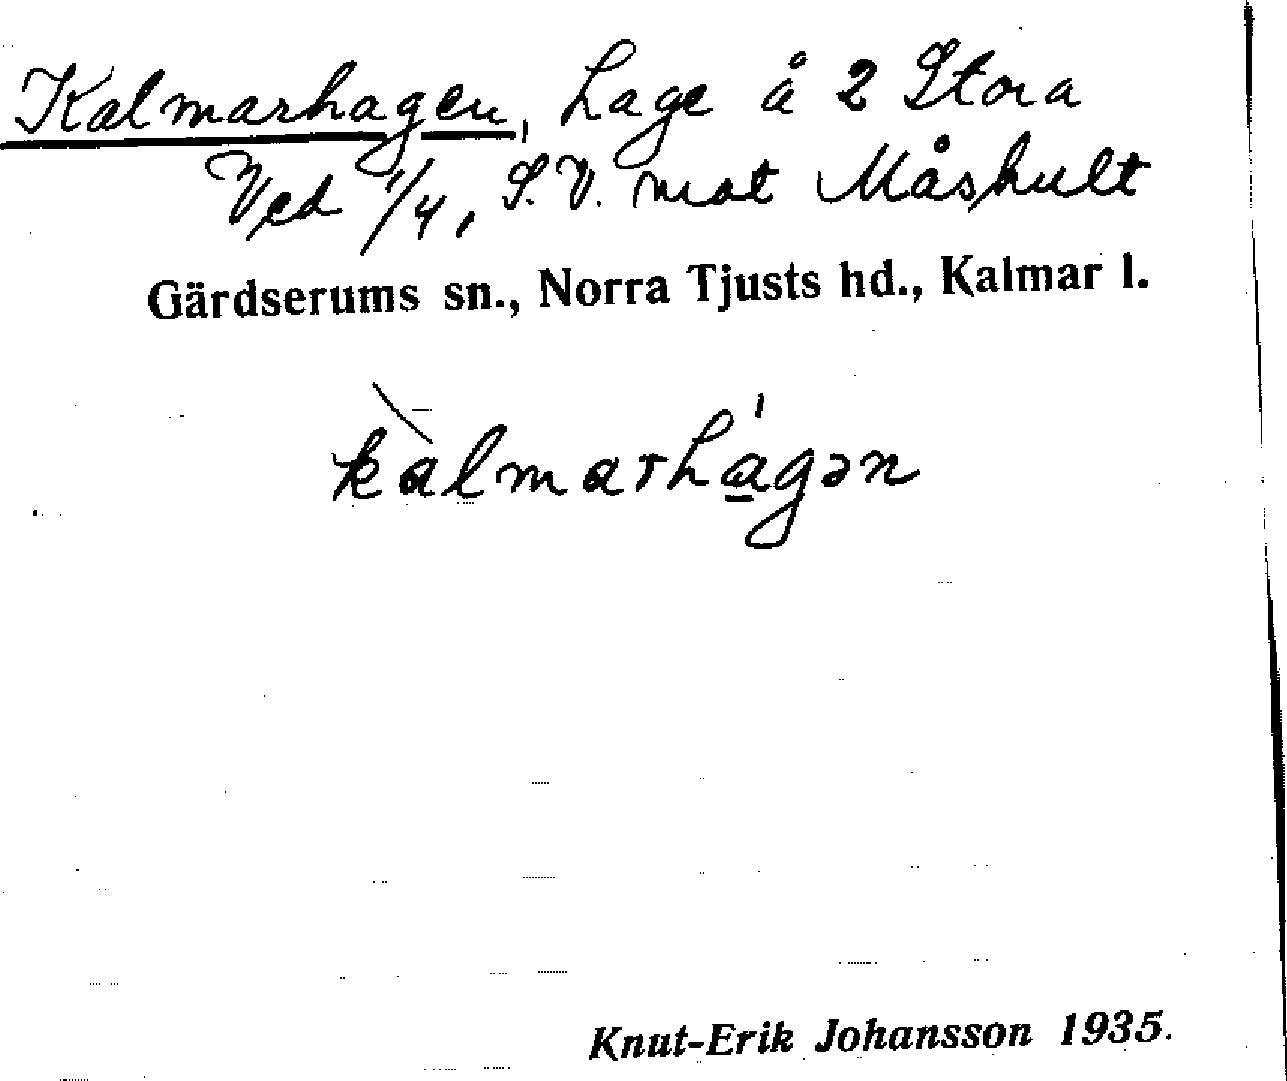 Kalmarhagen, Läge å 2 Stora
Ved 1/4, S.V. mot Måshult
Gärdserums sn., Norra Tjusts hd., Kalmar l.
kàlmarhágən
Knut-Erik Johansson 1935.